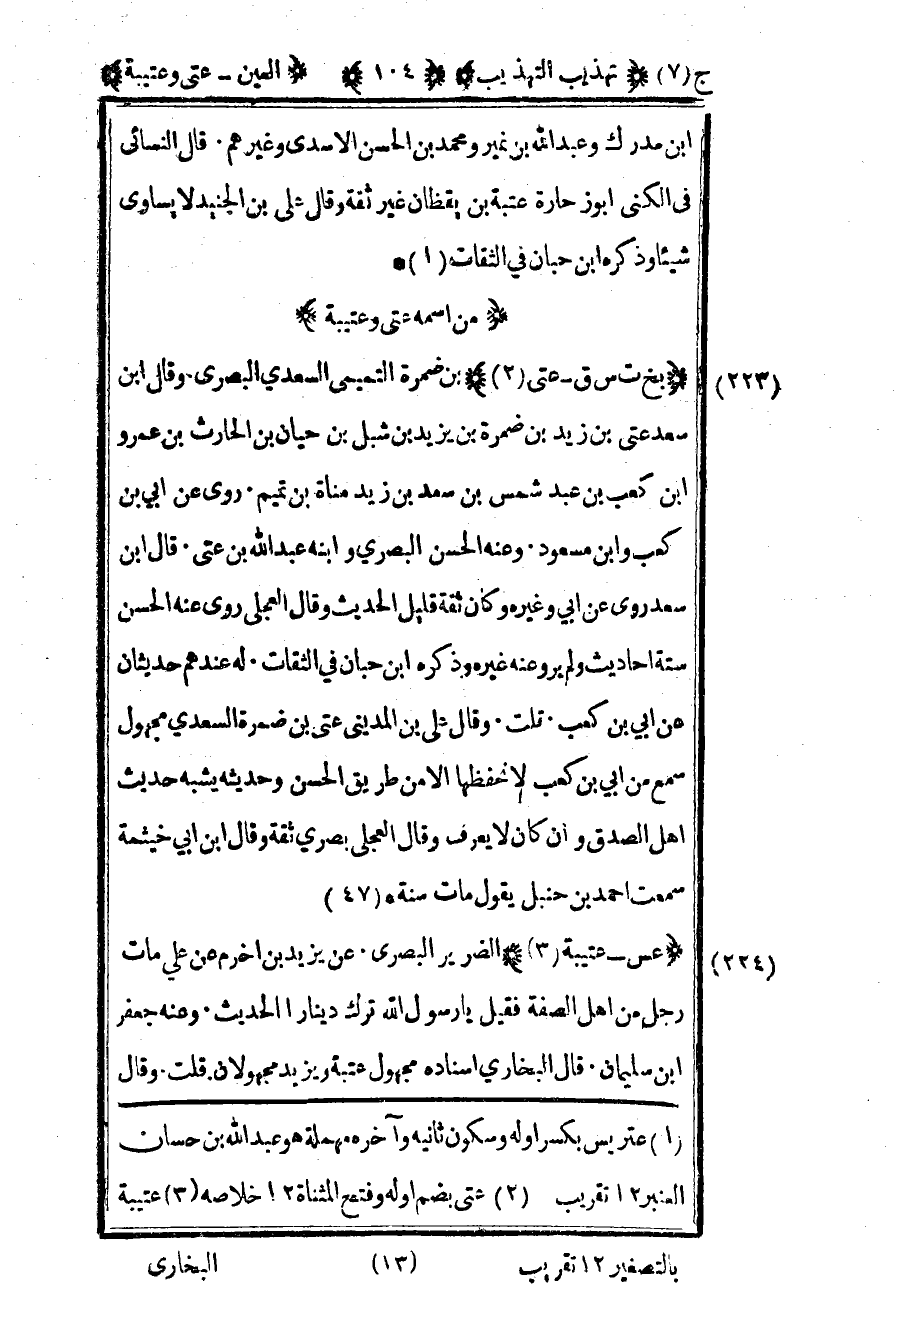 ج(٧) ﴿ تهذيب التهذيب ﴾ ﴿ ١٠٤ ﴾ ﴿ العين ــ عتى وعتيبة ﴾
ابن مدرك وعبدالله بن نمير ومحمد بن الحسن الاسدى وغيرهم · قال النسائى
فى الكنى ابوز حارة عتبة بن يقظان غير ثقة وقال على بن الجنيد لا يساوى
شيئا وذكره ابن حبان في الثقات (١) *
﴿ من اسمه عتى وعتيبة ﴾
(٢٢٣) ﴿ بخ ت س ق ــ عتى (٢) ﴾ بن ضمرة التميمى السعدي البصرى · وقال ابن
سعد عتى بن زيد بن ضمرة بن يزيد بن شبل بن حيان بن الحارث بن عمرو
ابن كعب بن عبد شمس بن سعد بن زيد مناة بن تميم · روى عن ابي بن
كعب وابن مسعود · وعنه الحسن البصري و ابنه عبدالله بن عتى · قال ابن
سعد روى عن ابي وغيره وكان ثقة قليل الحديث وقال العجلى روى عنه الحسن
ستة احاديث ولم يرو عنه غيره وذكره ابن حبان في الثقات · له عندهم حديثان
عن ابي بن كعب · قلت · وقال على بن المدينى عتى بن ضمرة السعدي مجهول
سمع من ابي بن كعب لا نحفظها الا من طريق الحسن وحديثه يشبه حديث
اهل الصدق و ان كان لا يعرف وقال العجلى بصري ثقة وقال ابن ابي خيثمة
سمعت احمد بن حنبل يقول مات سنة * (٤٧)
(٢٢٤) ﴿ عس ــ عتيبة (٣) ﴾ الضرير البصرى · عن يزيد بن اخرم عن علي مات
رجل من اهل الصفة فقيل يا رسول الله ترك دينارا الحديث · وعنه جعفر
ابن سليمان · قال البخاري اسناده مجهول عتبة ويزيد مجهولان · قلت · وقال
(١) عتريس بكسر اوله وسكون ثانيه وآخره مهملة هو عبدالله بن حسان
العنبر ١٢ تقريب (٢) عتى بضم اوله وفتح المثناة ١٢ خلاصه (٣) عتيبة
بالتصغير ١٢ تقريب (١٣) البخارى